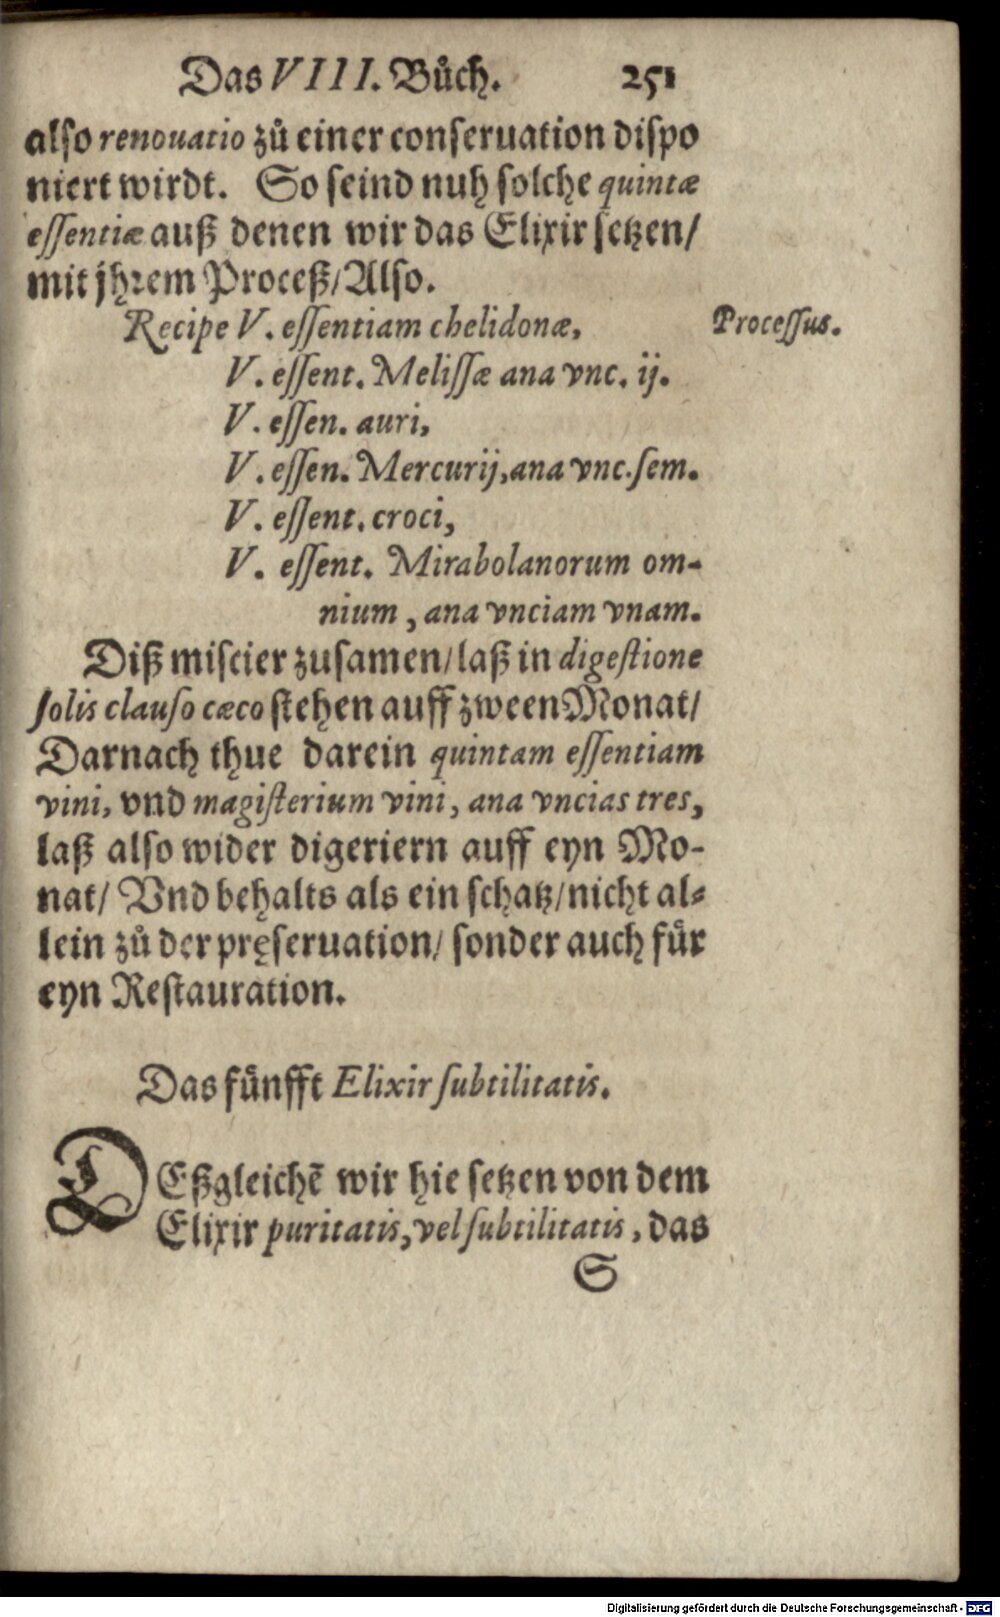 Das VIII. Bůch. 251
also renouatio zů einer conseruation dispo
niert wirdt. So seind nuh solche quintæ
essentiæ auß denen wir das Elixir setzen/
mit jhrem Proceß/Also.
Recipe V. essentiam chelidonæ,
Processus.
V. essent. Melissæ ana vnc. ij.
V. essen. auri,
V. essen. Mercurij, ana vnc. sem.
V. essent. croci,
V. essent. Mirabolanorum om-
nium, ana vnciam vnam.
Diß miscier zusamen/laß in digestione
solis clauso cæco stehen auff zween Monat/
Darnach thue darein quintam essentiam
vini, vnd magisterium vini, ana vncias tres,
laß also wider digeriern auff eyn Mo-
nat/ Vnd behalts als ein schatz/nicht al-
lein zů der pręseruation/ sonder auch fůr
eyn Restauration.
Das fůnfft Elixir subtilitatis.
DEßgleichẽ wir hie setzen von dem
Elixir puritatis, vel subtilitatis, das
S
Digitalisierung gefördert durch die Deutsche Forschungsgemeinschaft - DFG